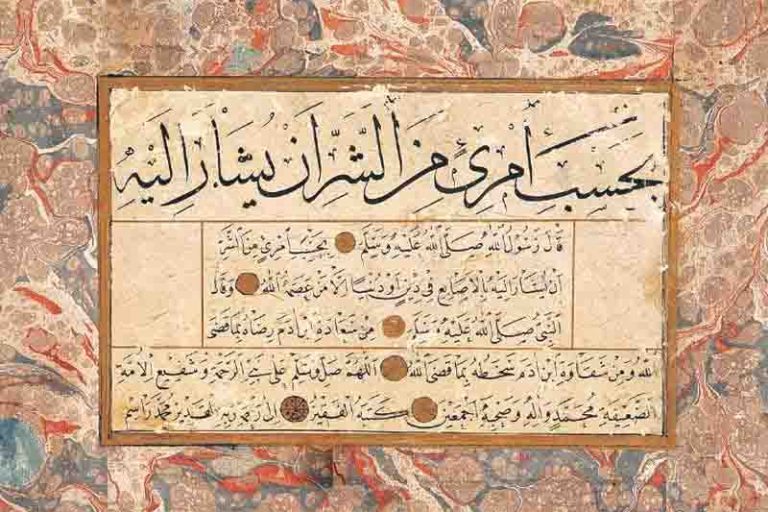 بِحَسْبِ أمْرِئٍ مِنَ الشَّرِّ أَنْ يُشَارَ إلَيْهِ
قال رسول الله صلى الله عليه وسلم بحسب امرئ من الشر
ان يشار اليه بالاصابع في دين او دنيا الا من عصمه الله وقال
النبي صلى الله عليه وسلم من سعادة ابن ادم رضاه بما قضى
الله ومن شقاوة ابن ادم سخطه بما قضى الله اللهم صل وسلم على نبي الرحمة وشفيع الامة
محمد واله وصحبه اجمعين كتبه الفقير الى رحمة ربه القدير محمد راسم